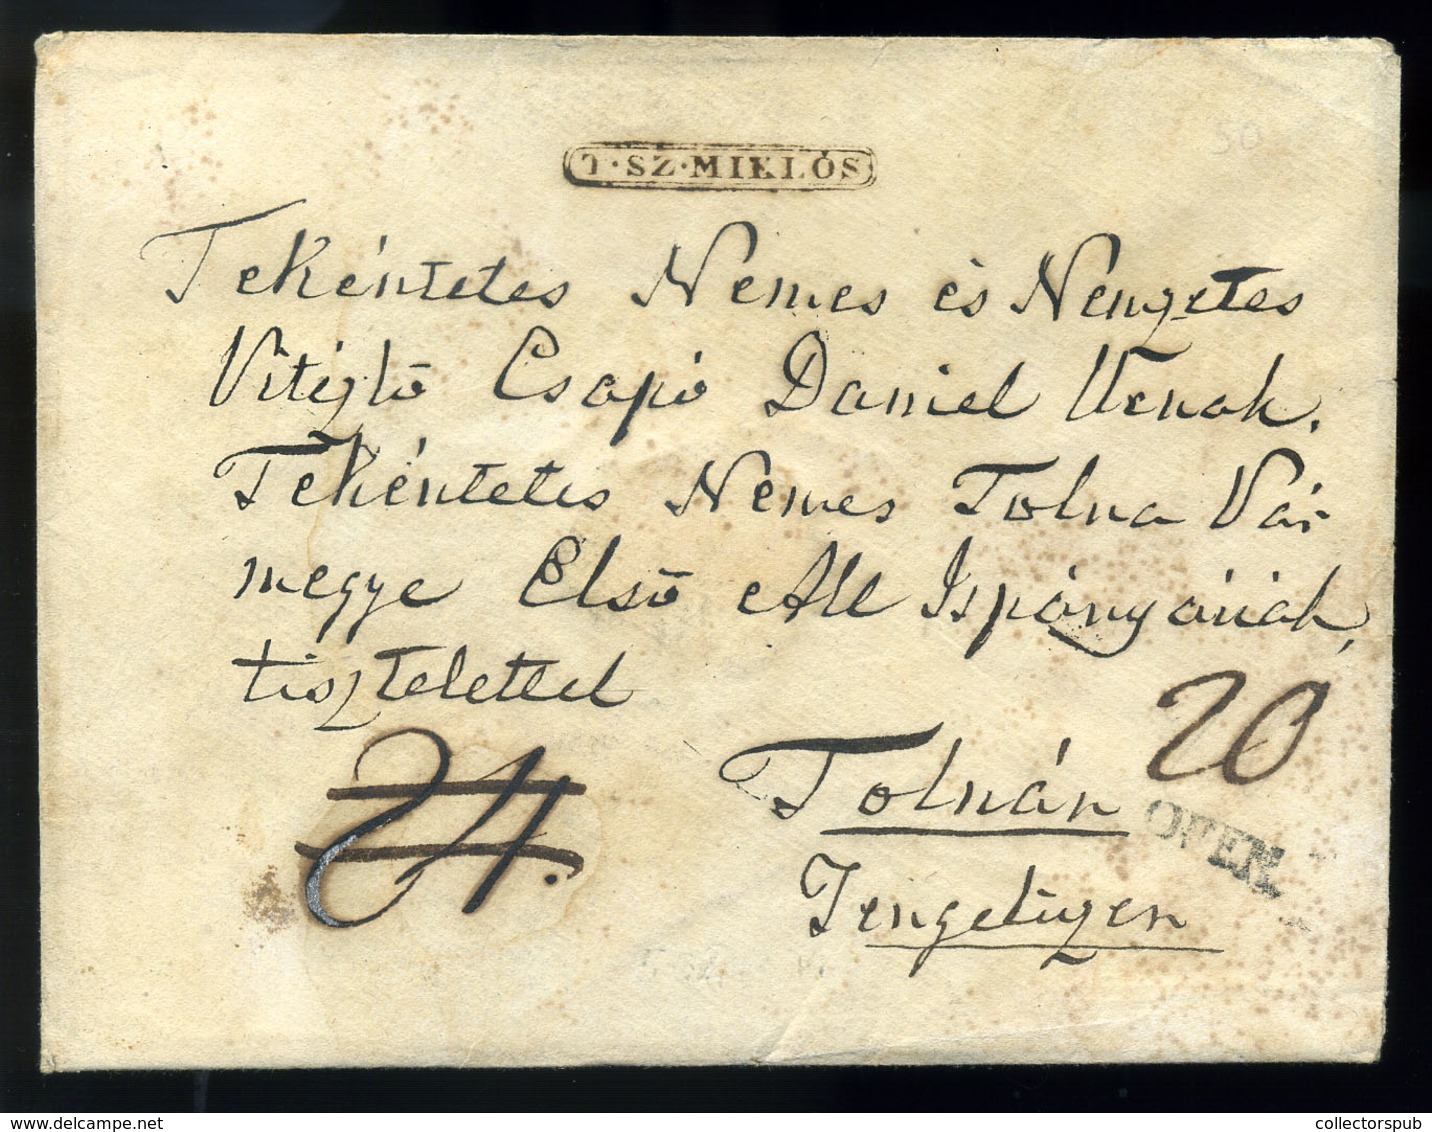 50
T·SZ·MIKLÓS
Tekéntetes Nemes és Nemzetes
Vitézlő Csapó Daniel Urnak.
Tekéntetes Nemes Tolna Vár
megye Első All Ispányáiák,
tisztelettel
20
24.
Tolnán
OFEN
Tengelizen
collectorspub